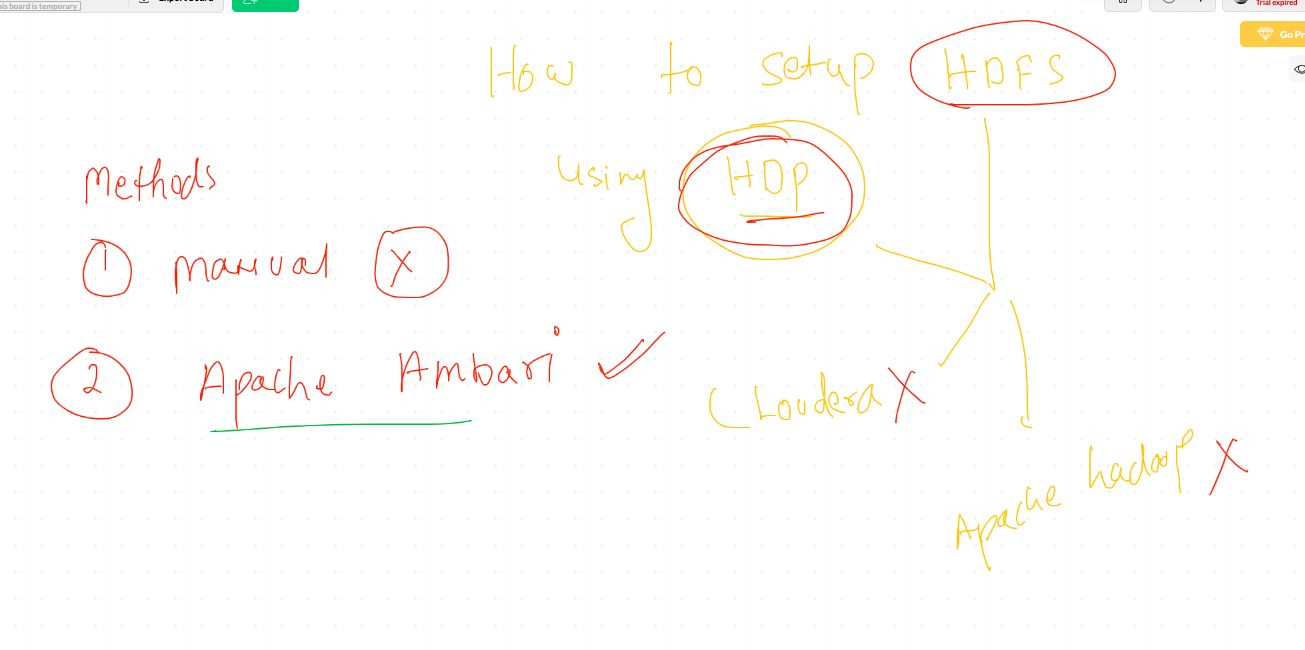 his board is temporary
Trial expired
Go Pr
How to setup HDFS
using HDP
Methods
1 manual X
2 Apache Ambari ✓
Cloudera X
Apache hadoop X